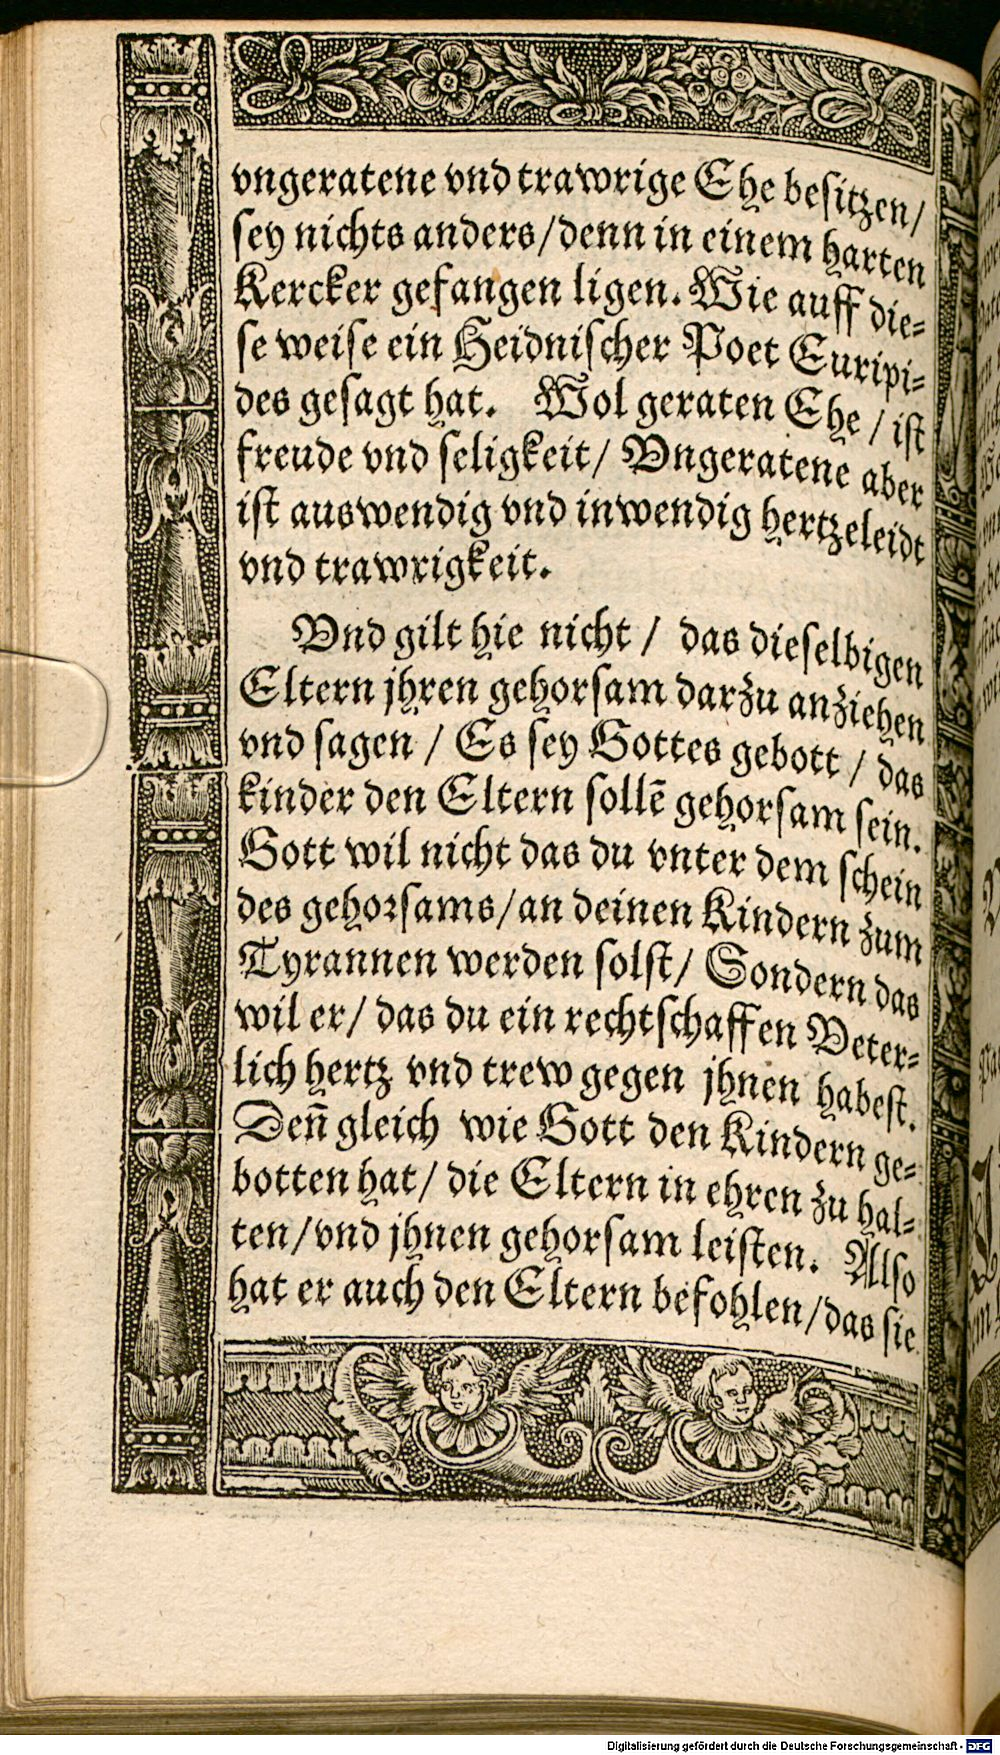 vngeratene vnd trawrige Ehe besitzen/
sey nichts anders/denn in einem harten
Kercker gefangen ligen. Wie auff die=
se weise ein Heidnischer Poet Euripi=
des gesagt hat. Wol geraten Ehe / ist
freude vnd seligkeit/ Vngeratene aber
ist auswendig vnd inwendig hertzeleidt
vnd trawrigkeit.
Vnd gilt hie nicht / das dieselbigen
Eltern jhren gehorsam darzu anziehen
vnd sagen / Es sey Gottes gebott / das
kinder den Eltern sollē gehorsam sein.
Gott wil nicht das du vnter dem schein
des gehorsams/an deinen Kindern zum
Tyrannen werden solst/ Sondern das
wil er/ das du ein rechtschaffen Veter=
lich hertz vnd trew gegen jhnen habest.
Den̄ gleich wie Gott den Kindern ge=
botten hat/ die Eltern in ehren zu hal=
ten/vnd jhnen gehorsam leisten. Also
hat er auch den Eltern befohlen/das sie
Digitalisierung gefördert durch die Deutsche Forschungsgemeinschaft - DFG